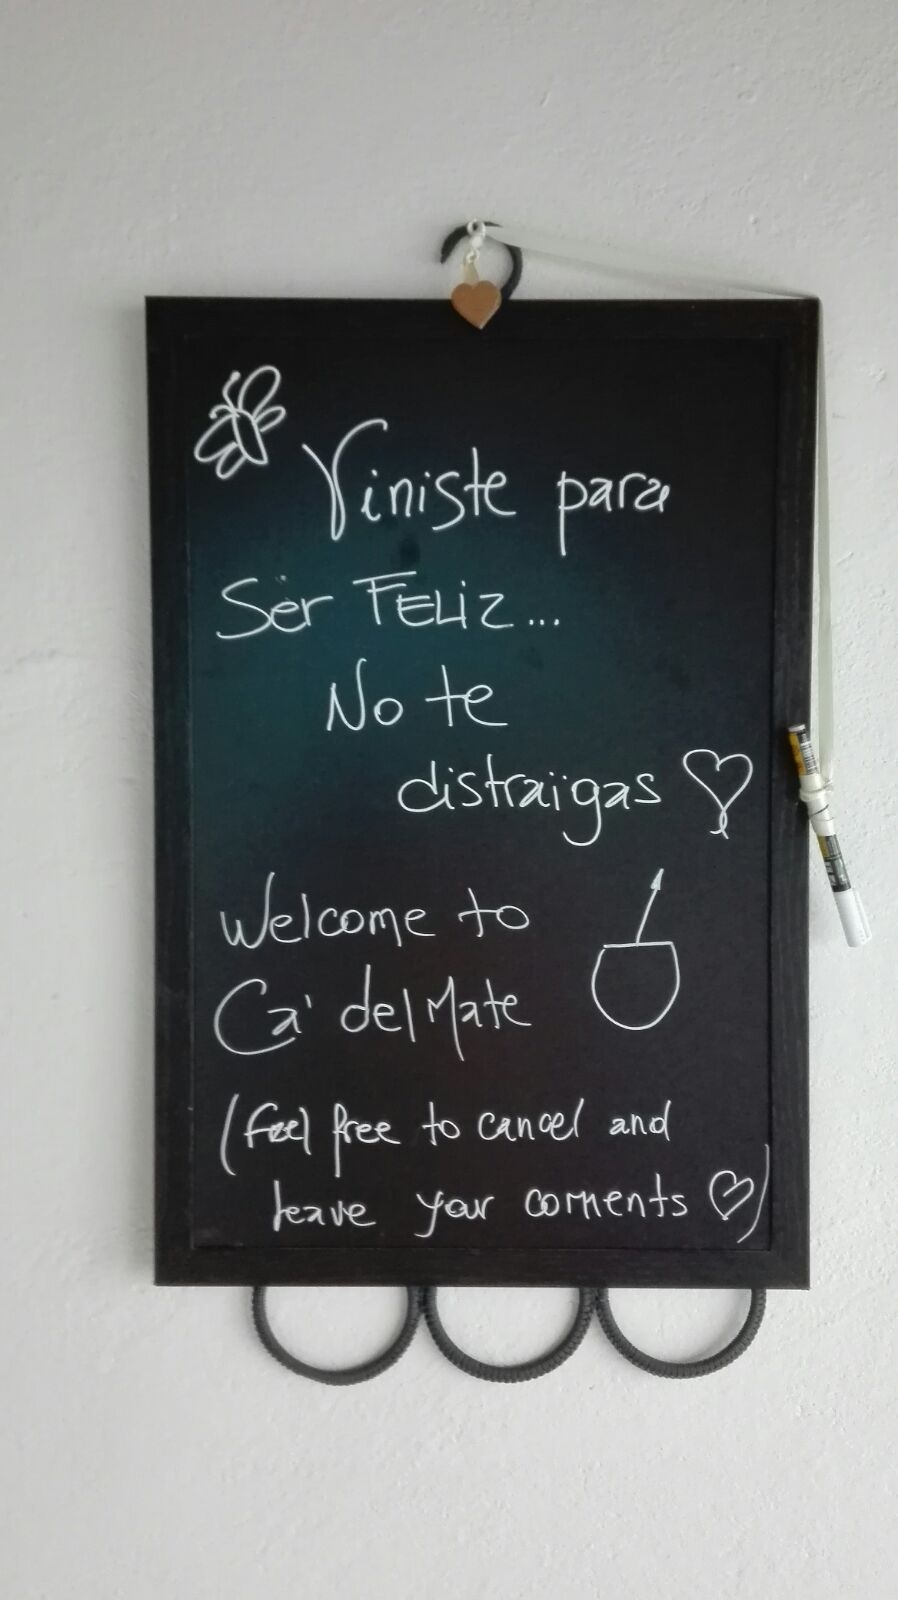 Viniste para
Ser FELIZ...
No te
distraigas
Welcome to
Ca' del Mate
(Feel free to cancel and
leave your comments )